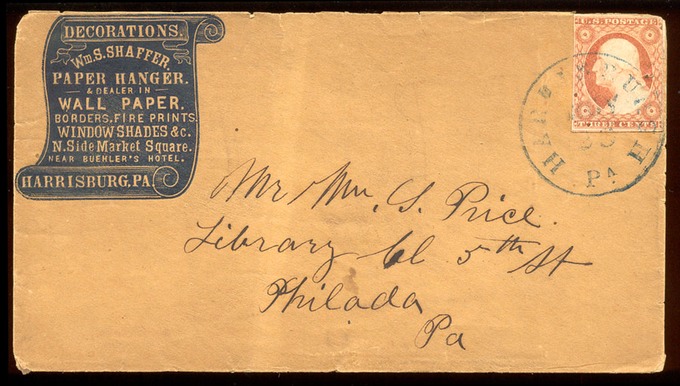 DECORATIONS.
Wm. S. SHAFFER,
PAPER HANGER.
& DEALER IN
WALL PAPER,
BORDERS, FIRE PRINTS,
WINDOW SHADES &c.
N. Side Market Square.
NEAR BUEHLER'S HOTEL.
HARRISBURG, PA.
U.S. POSTAGE
THREE CENTS
HARRISBURGH
PA
Mr Wm, S. Price.
Library 5th St
Philada
Pa